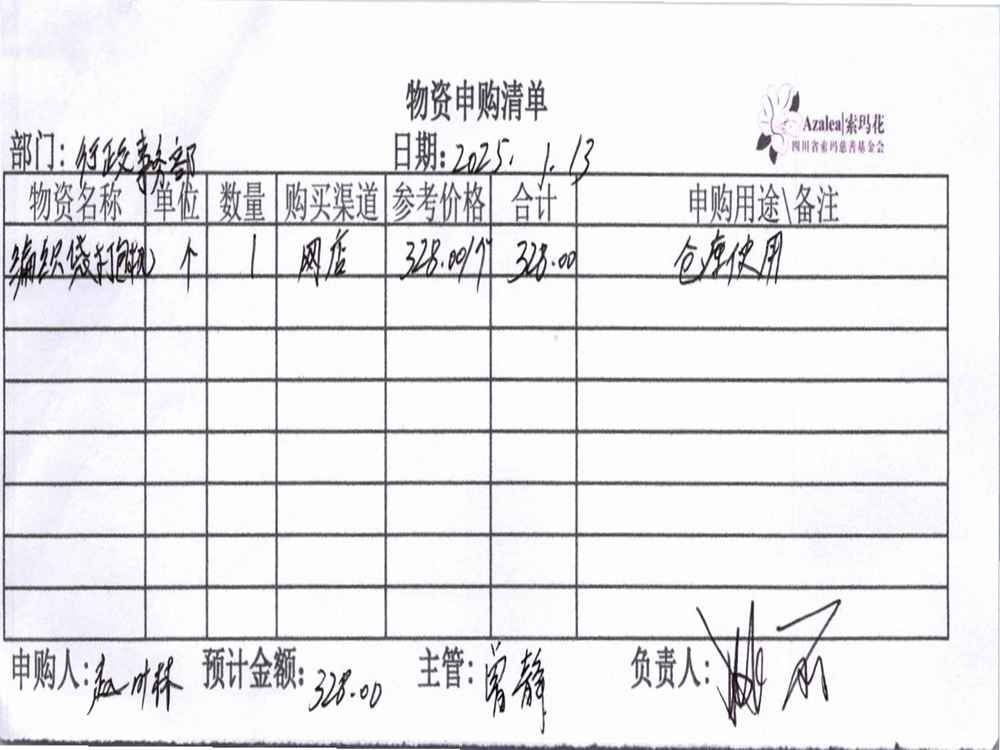 物资申购清单
Azalea|索玛花
四川省索玛慈善基金会
部门:行政事务部 日期:2025.1.13
物资名称 单位 数量 购买渠道 参考价格 合计 申购用途\备注
编织袋封包机 个 1 网店 328.00/个 328.00 仓库使用
申购人:赵时林 预计金额:328.00 主管:曾静 负责人: